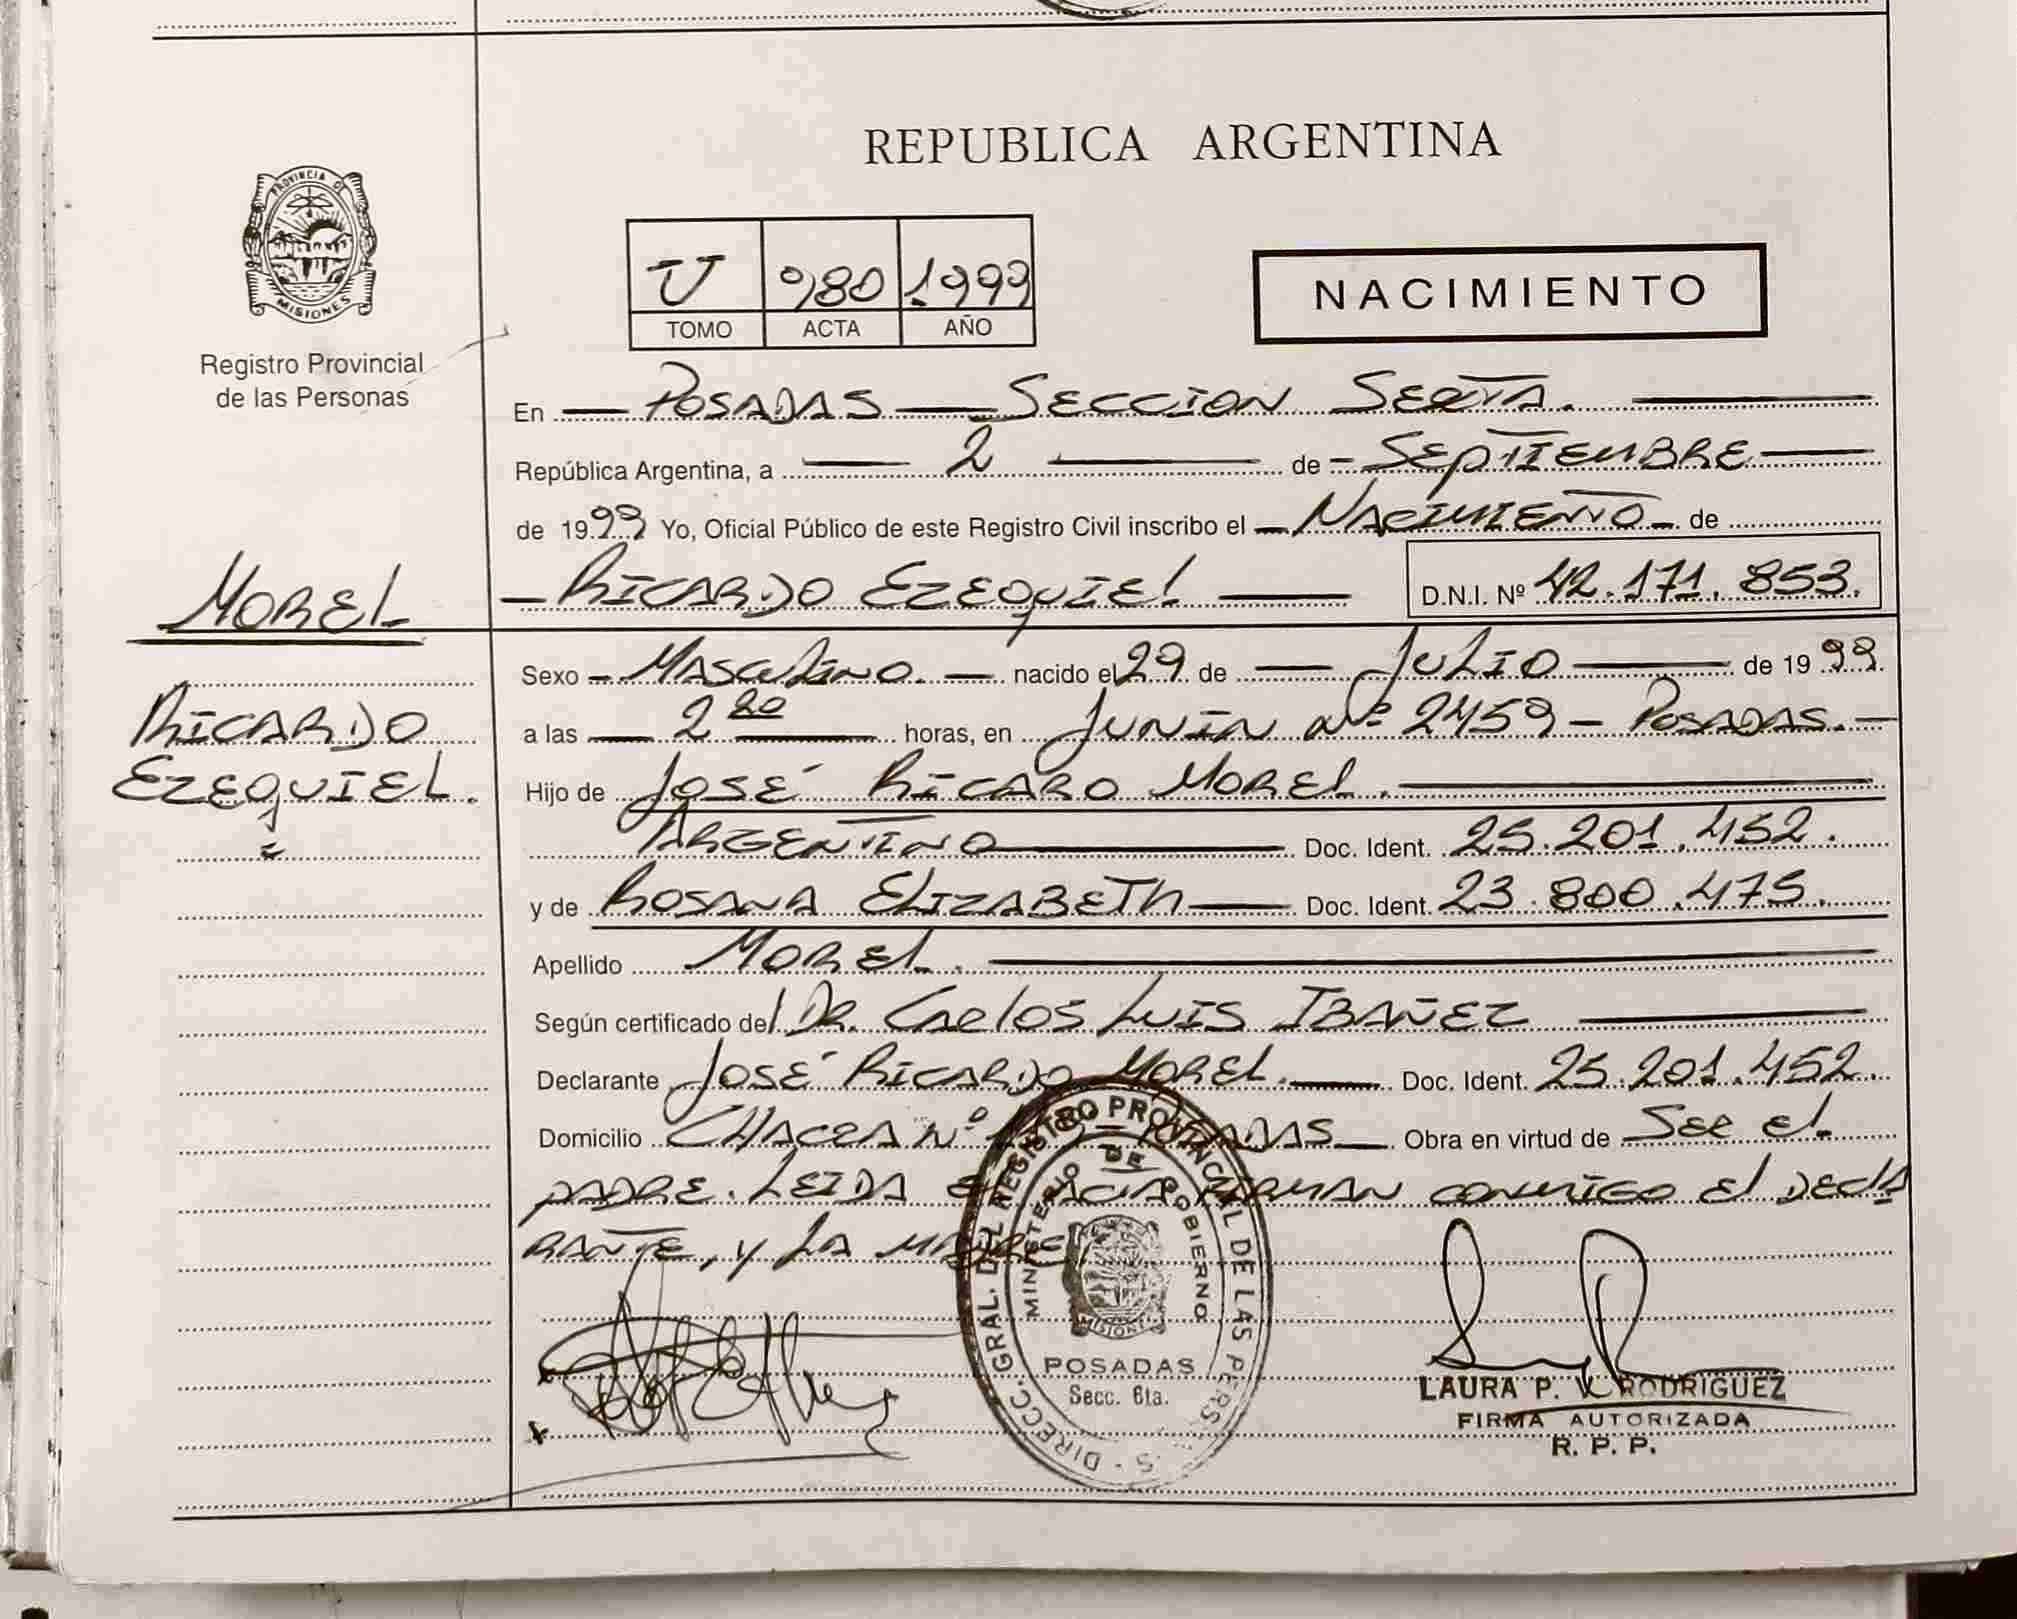 REPUBLICA ARGENTINA
PROVINCIA DE
MISIONES
Registro Provincial
de las Personas
U 980 1999
TOMO ACTA AÑO
NACIMIENTO
En POSADAS — SECCION SEXTA.
República Argentina, a — 2 — de SEPTIEMBRE
de 1999 Yo, Oficial Público de este Registro Civil inscribo el NACIMIENTO de
RICARDO EZEQUIEL D.N.I. Nº 42.171.853.
MOREL
RICARDO
EZEQUIEL.
Sexo — MASCULINO. — nacido el 29 de — JULIO — de 1999.
a las — 2 20 — horas, en JUNIN Nº 2459 — POSADAS. —
Hijo de JOSÉ RICARO MOREL.
ARGENTINO Doc. Ident. 25.201.452.
y de ROSANA ELIZABETH — Doc. Ident. 23.800.475.
Apellido MOREL.
Según certificado del DR. CARLOS LUIS IBAÑEZ
Declarante JOSÉ RICARDO MOREL. — Doc. Ident. 25.201.452.
Domicilio CHACRA Nº POSADAS — Obra en virtud de SER EL
PADRE. LEIDA EL ACTA FIRMAN CONMIGO EL DECLA
RANTE, Y LA MADRE
DIRECC. GRAL. DEL REGISTRO PROVINCIAL DE LAS PERS.
MINISTERIO DE GOBIERNO
MISIONES
POSADAS
Secc. 6ta.
LAURA P. V. RODRIGUEZ
FIRMA AUTORIZADA
R. P. P.